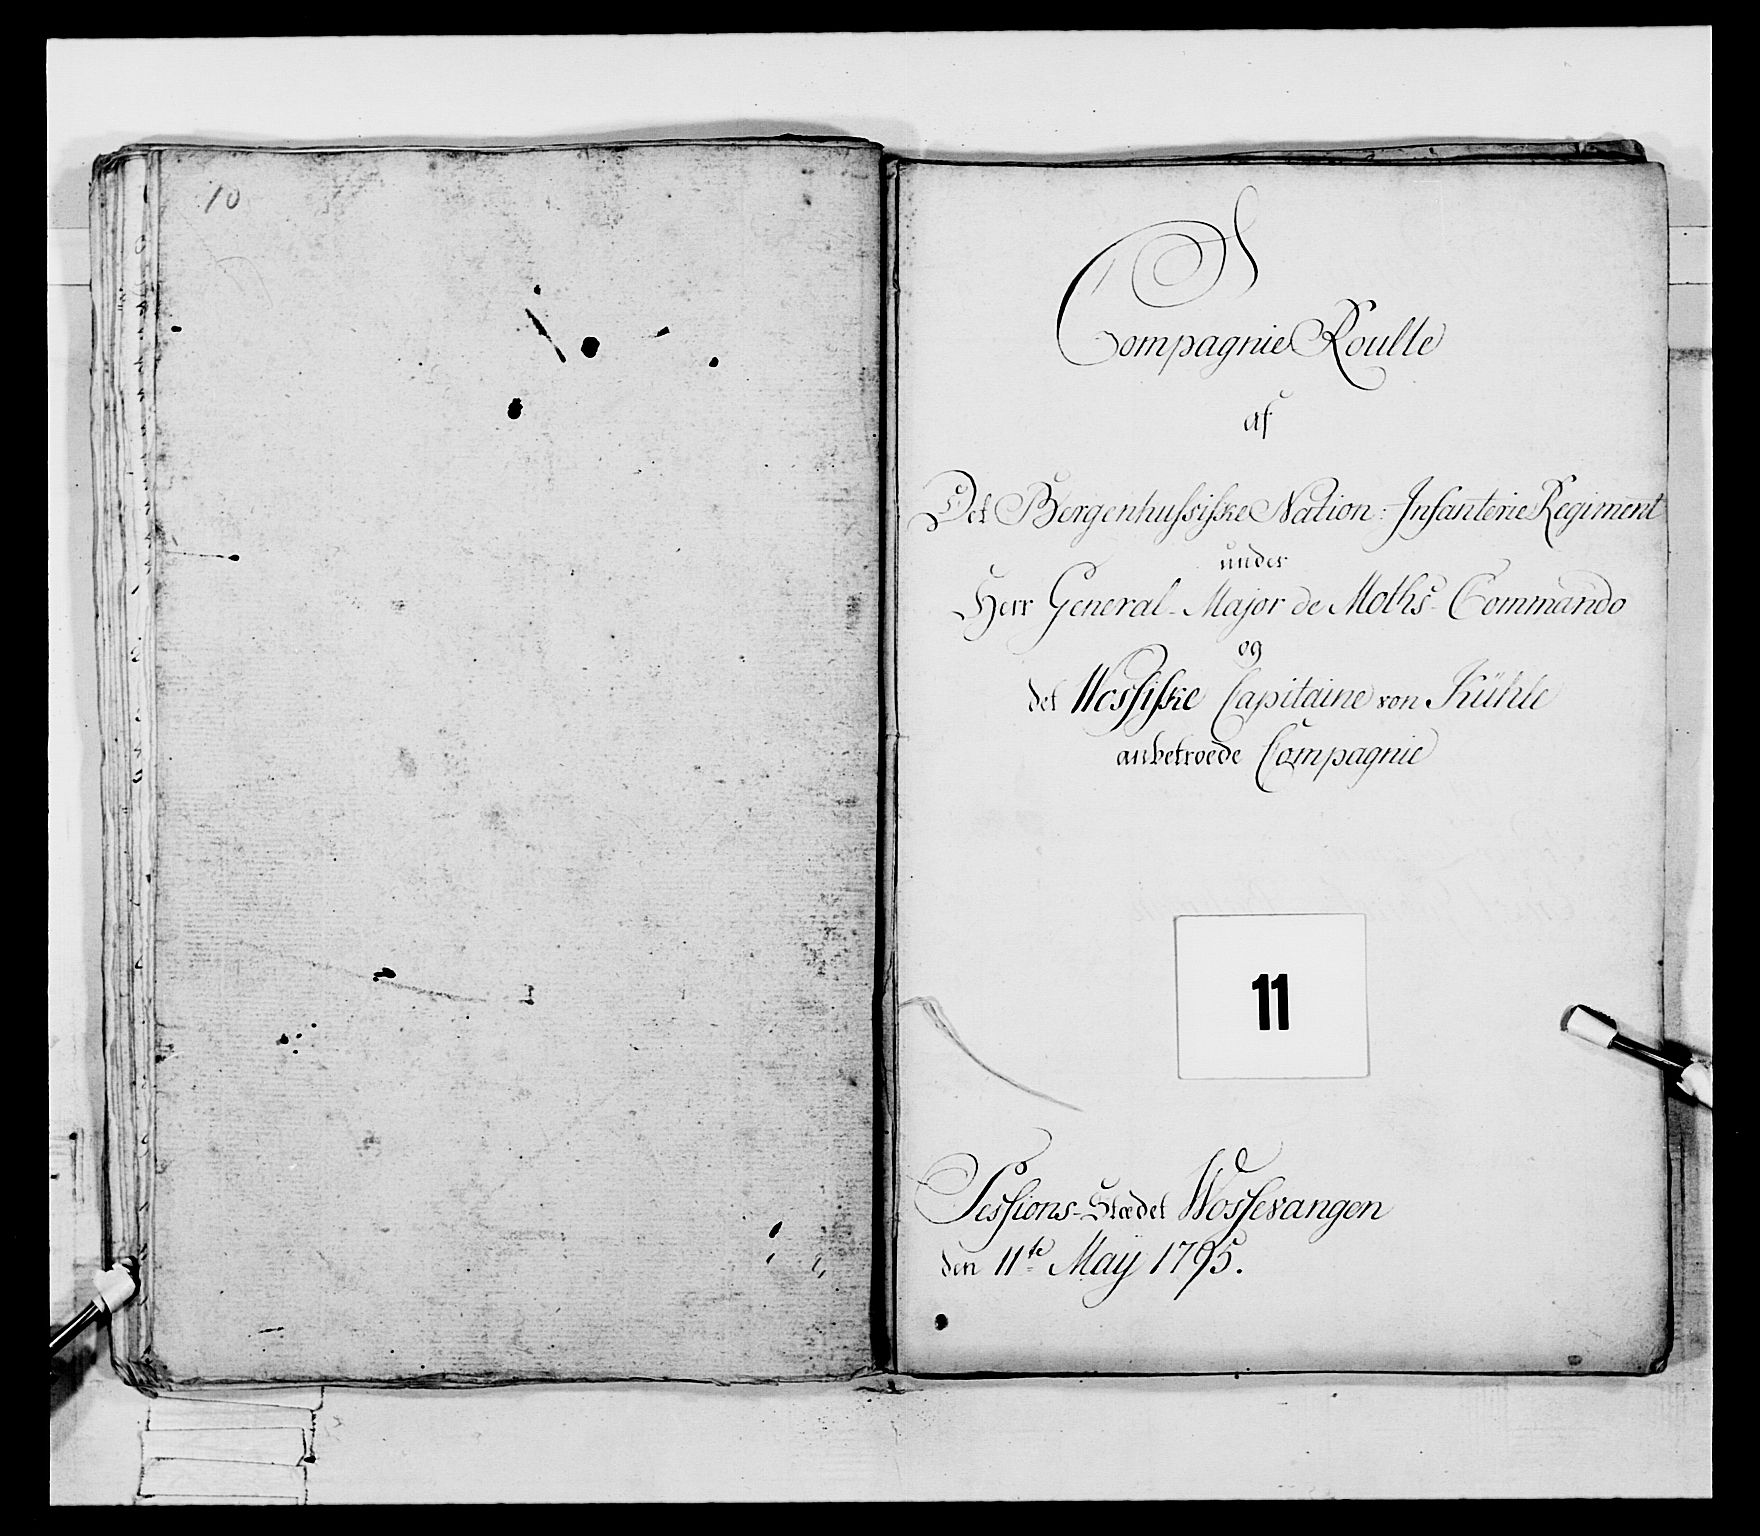 10
Compagnie Roulle
af
Det Bergenhussiske Nation: Infanterie Regiment
under
Herr General-Major de Moths- Commando
og
det Wossiske Capitaine von Kühle
anbetroede Compagnie
11
Sessions-Stædet Wossevangen
den 11te May 1795.